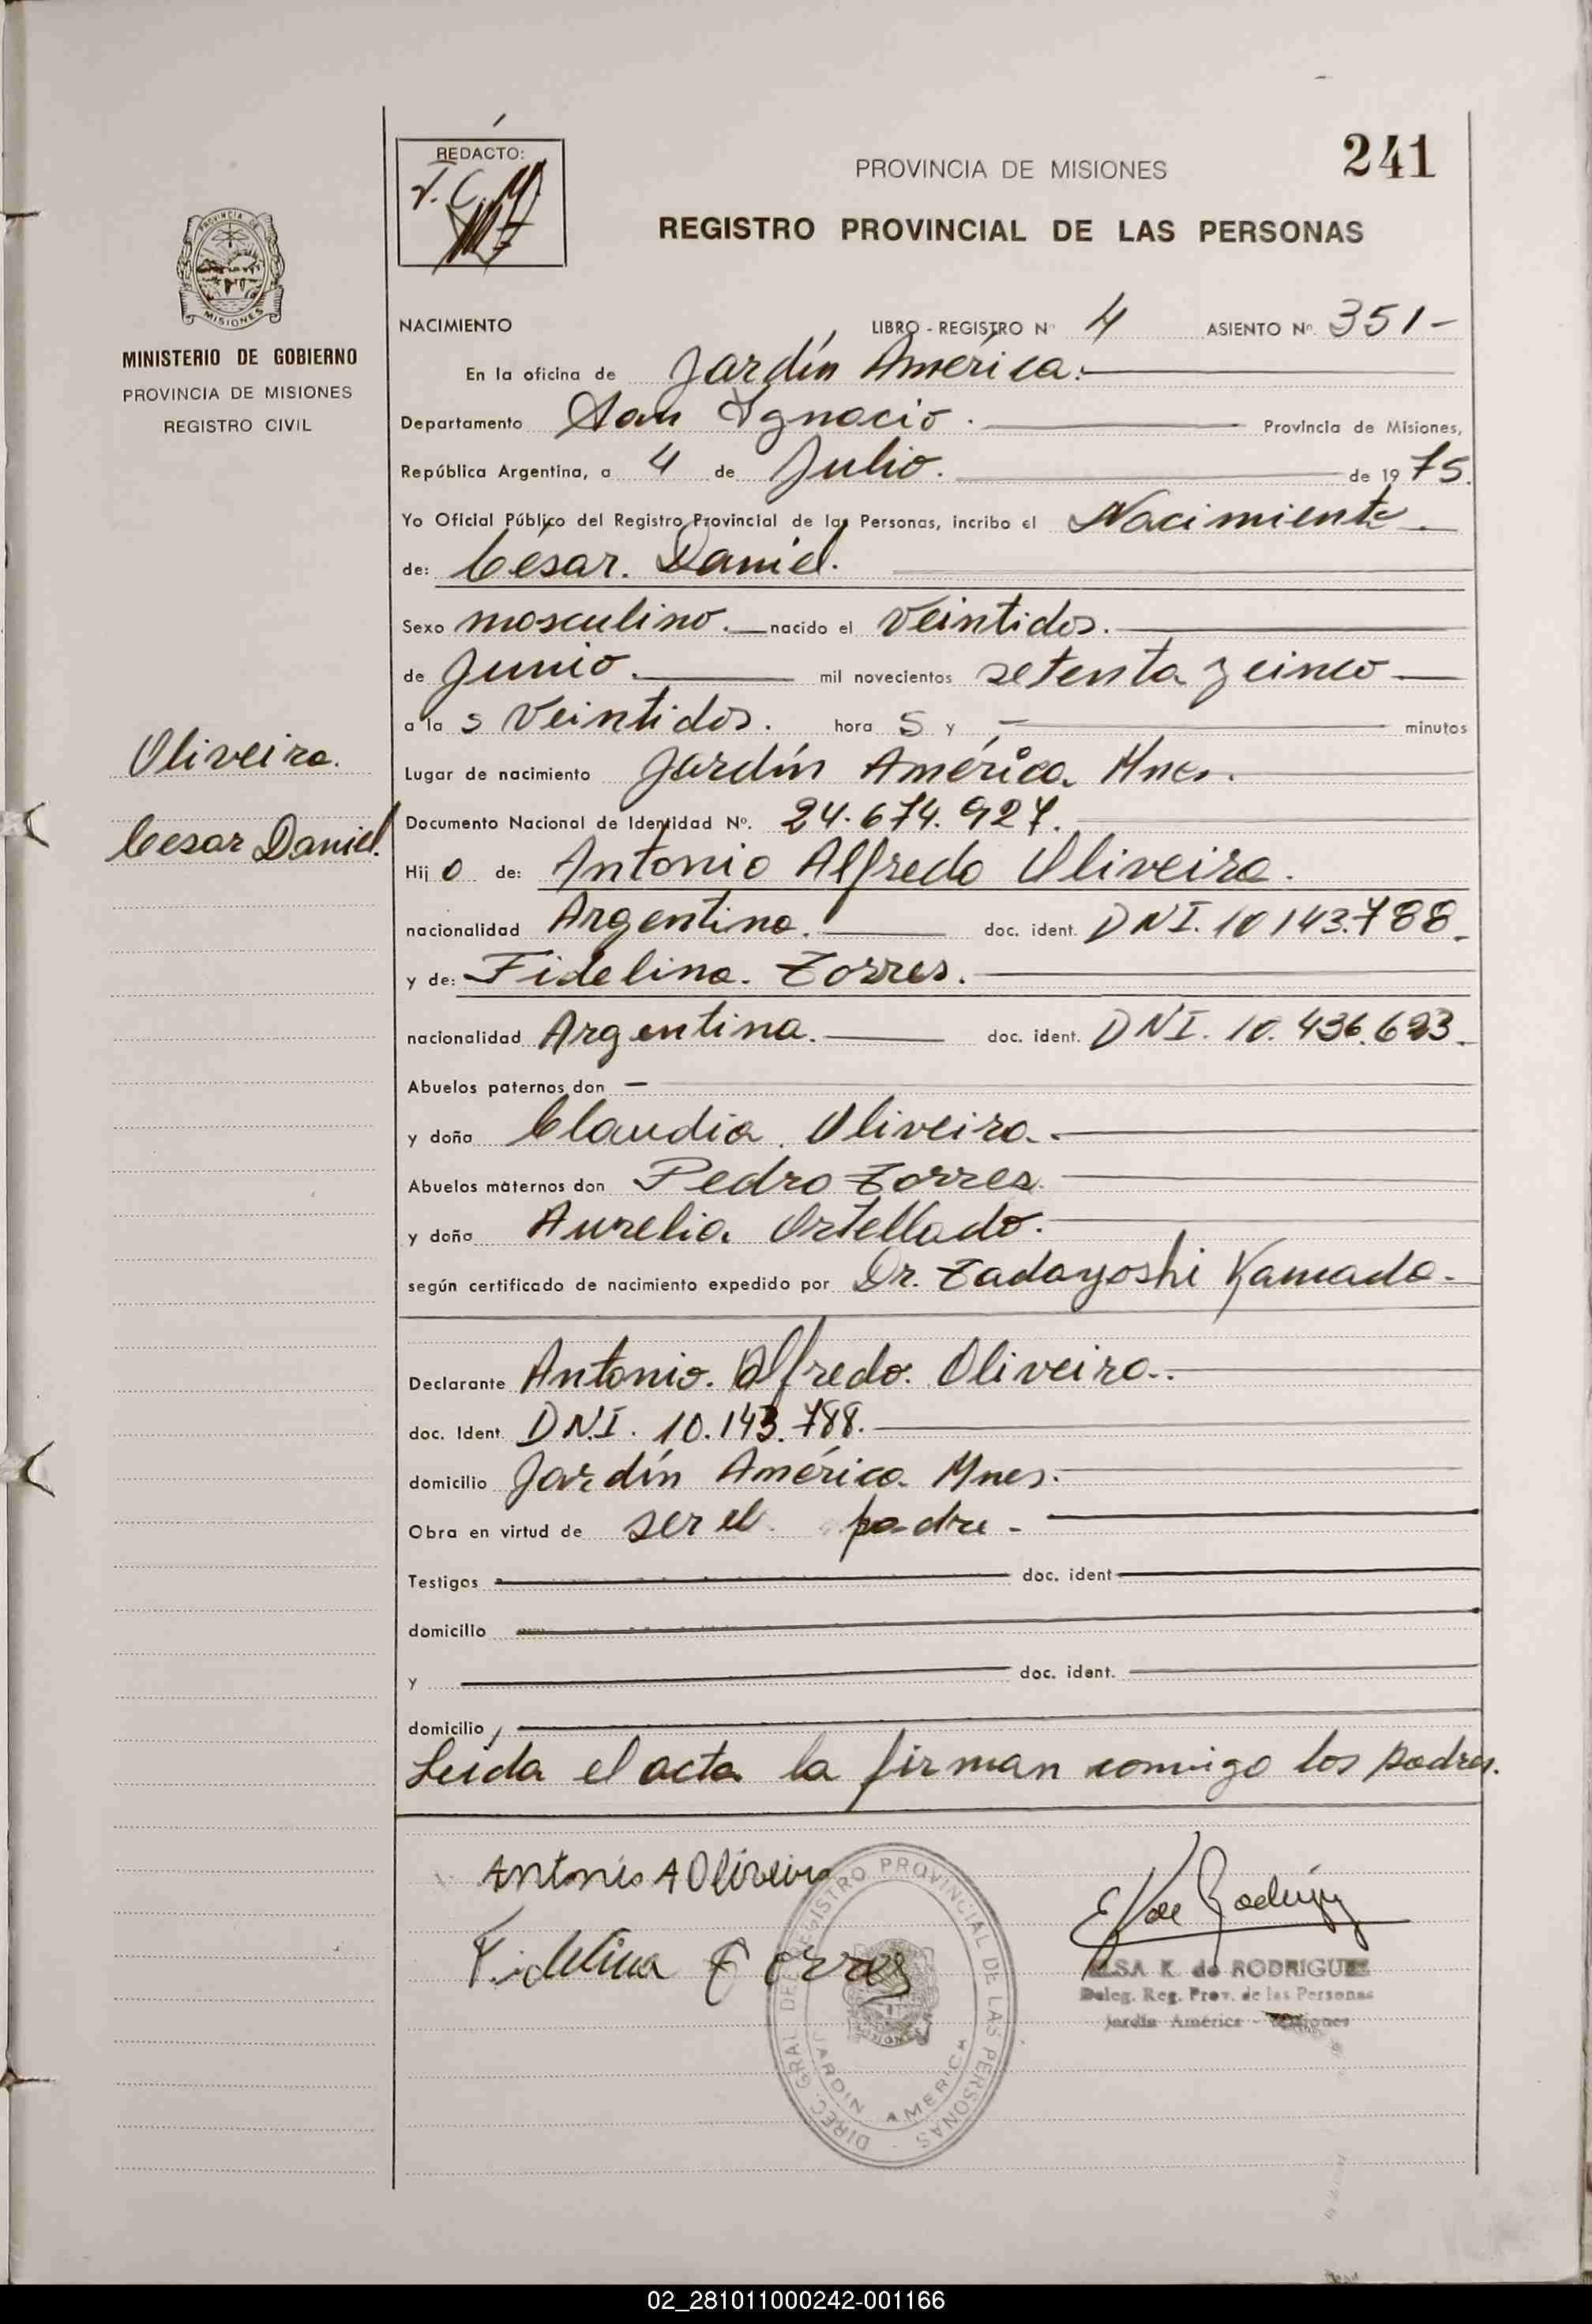 241
REDACTO:
PROVINCIA DE MISIONES
REGISTRO PROVINCIAL DE LAS PERSONAS
PROVINCIA DE
MISIONES
MINISTERIO DE GOBIERNO
PROVINCIA DE MISIONES
REGISTRO CIVIL
Oliveira.
Cesar Daniel.
NACIMIENTO LIBRO - REGISTRO Nº 4 ASIENTO Nº. 351-
En la oficina de Jardín América.
Departamento San Ignacio. Provincia de Misiones,
República Argentina, a 4 de Julio. de 1975.
Yo Oficial Público del Registro Provincial de las Personas, incribo el Nacimiento
de: César. Daniel.
Sexo masculino. nacido el veintidos.
de Junio. mil novecientos setenta y cinco
a la s veintidos. hora s y - minutos
Lugar de nacimiento Jardín América. Mnes.
Documento Nacional de Identidad Nº. 24.674.927.
Hij o de: Antonio Alfredo Oliveira.
nacionalidad Argentina. doc. ident. DNI. 10 143.788.
y de: Fidelina. Torres.
nacionalidad Argentina. doc. ident. DNI. 10. 436.623.
Abuelos paternos don -
y doña Claudia. Oliveira.
Abuelos maternos don Pedro Torres.
y doña Aurelia. Ortellado.
según certificado de nacimiento expedido por Dr. Tadayoshi Kamada.
Declarante Antonio. Alfredo. Oliveira.
doc. Ident. DN.I. 10.143.788.
domicilio Jardín América. Mnes.
Obra en virtud de ser el padre -
Testigos doc. ident
domicilio
y doc. ident.
domicilio
Leída el acta la firman conmigo los padres.
Antonio A Oliveira
Fidelina Torres
E K de Rodriguez
ELSA K. de RODRIGUEZ
Deleg. Reg. Prov. de las Personas
Jardín América - Misiones
DIREC. GRAL. DEL REGISTRO PROVINCIAL DE LAS PERSONAS
JARDIN AMERICA
02_281011000242-001166